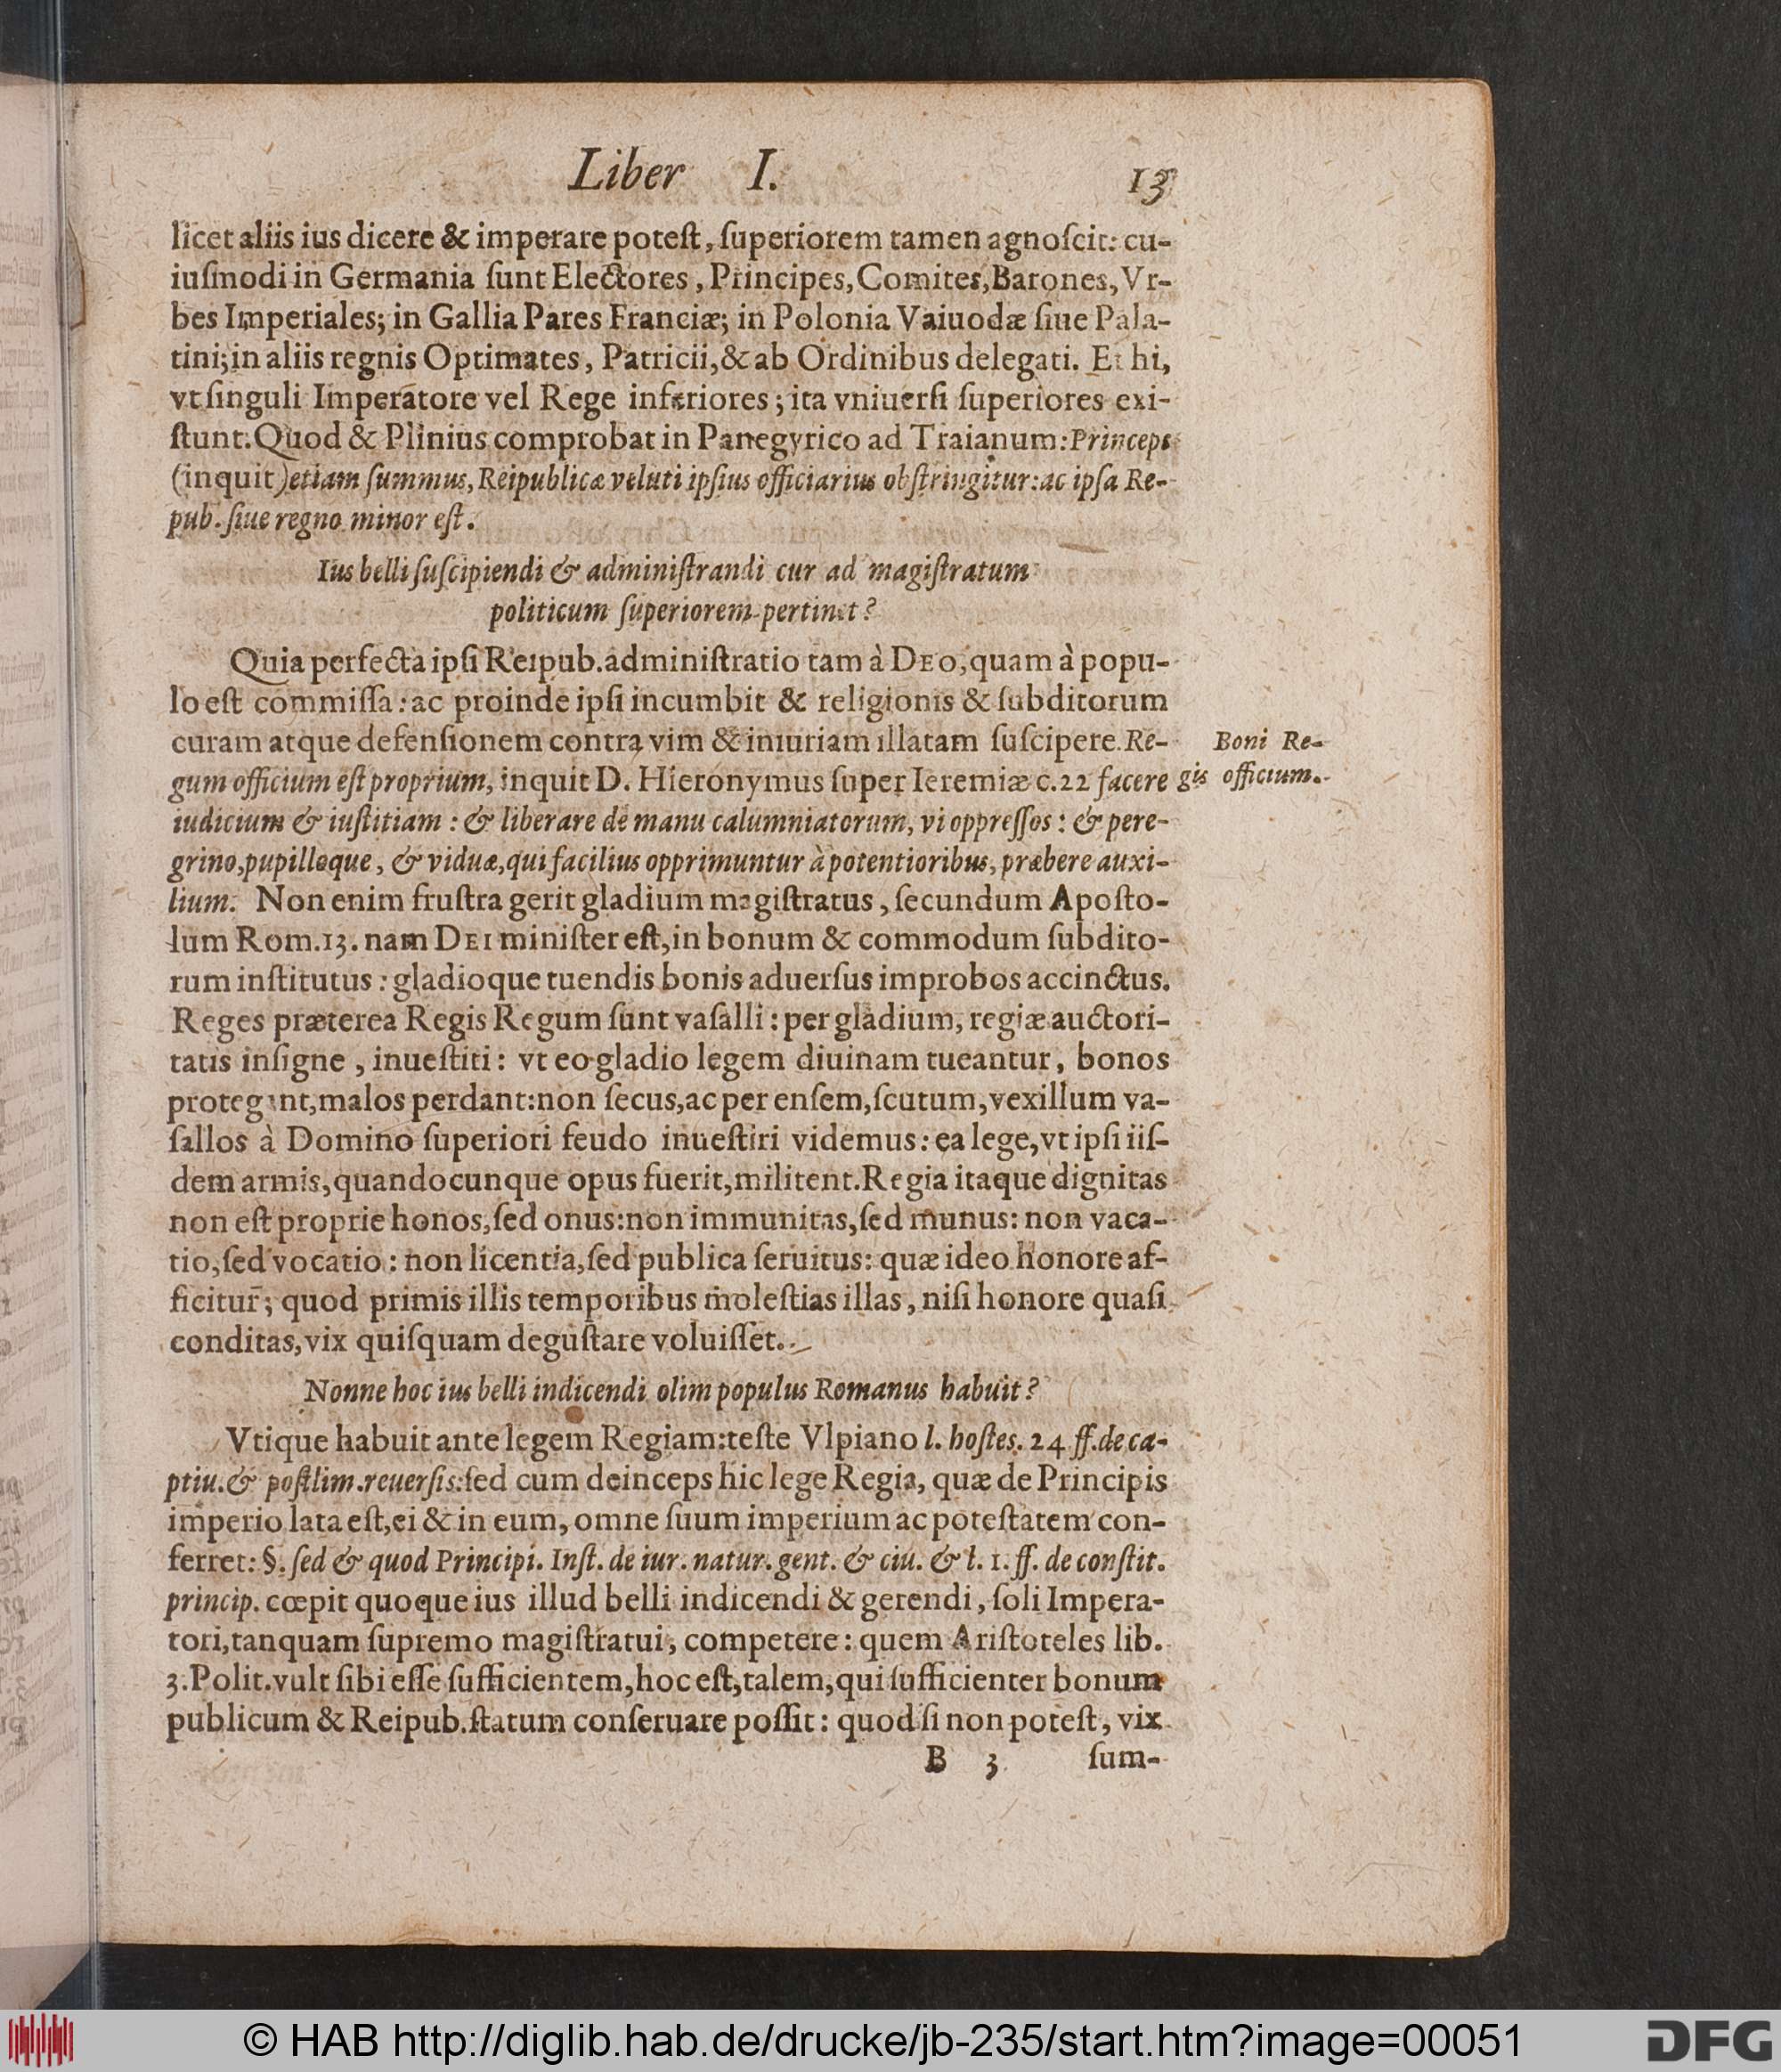 Liber I. 13
licet aliis ius dicere & imperare poteſt, ſuperiorem tamen agnoſcit: cu-
iuſmodi in Germania ſunt Electores, Principes, Comites, Barones, Vr-
bes Imperiales; in Gallia Pares Franciæ; in Polonia Vaiuodæ ſiue Pala-
tini; in aliis regnis Optimates, Patricii, & ab Ordinibus delegati. Et hi,
vt ſinguli Imperatore vel Rege inferiores; ita vniuerſi ſuperiores exi-
ſtunt. Quod & Plinius comprobat in Panegyrico ad Traianum: Princeps
(inquit) etiam ſummus, Reipublicæ veluti ipſius officiarius obſtringitur: ac ipſa Re-
pub. ſiue regno minor eſt.
Ius belli ſuſcipiendi & adminiſtrandi cur ad magiſtratum
politicum ſuperiorem pertinet?
Quia perfecta ipſi Reipub. adminiſtratio tam à DEO, quam à popu-
lo eſt commiſſa: ac proinde ipſi incumbit & religionis & ſubditorum
curam atque defenſionem contra vim & iniuriam illatam ſuſcipere. Re-
gum officium eſt proprium, inquit D. Hieronymus ſuper Ieremiæ c. 22 facere
iudicium & iuſtitiam: & liberare de manu calumniatorum, vi oppreſſos: & pere-
grino, pupilloque, & viduæ, qui facilius opprimuntur à potentioribus, præbere auxi-
lium. Non enim fruſtra gerit gladium magiſtratus, ſecundum Apoſto-
lum Rom. 13. nam DEI miniſter eſt, in bonum & commodum ſubdito-
rum inſtitutus: gladioque tuendis bonis aduerſus improbos accinctus.
Reges præterea Regis Regum ſunt vaſalli: per gladium, regiæ auctori-
tatis inſigne, inueſtiti: vt eo gladio legem diuinam tueantur, bonos
protegant, malos perdant: non ſecus, ac per enſem, ſcutum, vexillum va-
ſallos à Domino ſuperiori feudo inueſtiri videmus: ea lege, vt ipſi iiſ-
dem armis, quandocunque opus fuerit, militent. Regia itaque dignitas
non eſt proprie honos, ſed onus: non immunitas, ſed munus: non vaca-
tio, ſed vocatio: non licentia, ſed publica ſeruitus: quæ ideo honore af-
ficitur; quod primis illis temporibus moleſtias illas, niſi honore quaſi
conditas, vix quiſquam deguſtare voluiſſet.
Nonne hoc ius belli indicendi olim populus Romanus habuit?
Vtique habuit ante legem Regiam: teſte Vlpiano l. hoſtes. 24 ff. de ca-
ptiu. & poſtlim. reuerſis: ſed cum deinceps hic lege Regia, quæ de Principis
imperio lata eſt, ei & in eum, omne ſuum imperium ac poteſtatem con-
ferret: §. ſed & quod Principi. Inſt. de iur. natur. gent. & ciu. & l. 1. ff. de conſtit.
princip. cœpit quoque ius illud belli indicendi & gerendi, ſoli Impera-
tori, tanquam ſupremo magiſtratui, competere: quem Ariſtoteles lib.
3. Polit. vult ſibi eſſe ſufficientem, hoc eſt, talem, qui ſufficienter bonum
publicum & Reipub. ſtatum conſeruare poſſit: quod ſi non poteſt, vix
B 3 ſum-
Boni Re-
gis officium.
© HAB http://diglib.hab.de/drucke/jb-235/start.htm?image=00051
DFG